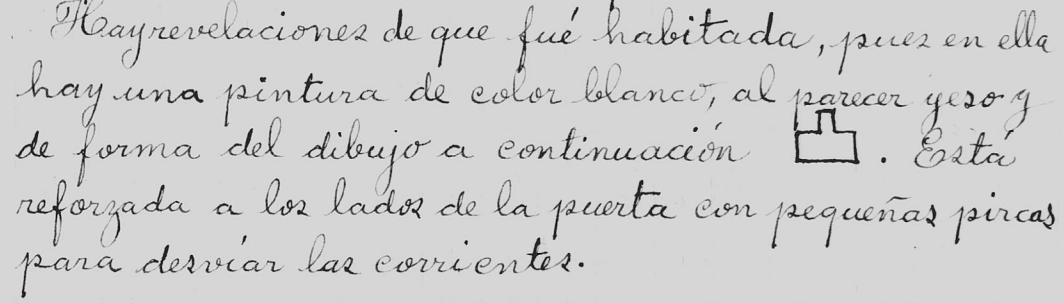 Hay revelaciones de que fué habitada, pues en ella
hay una pintura de color blanco, al parecer yeso y
de forma del dibujo a continuación . Está
reforzada a los lados de la puerta con pequeñas pircas
para desviar las corrientes.